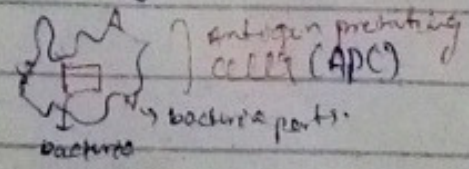 Antigen presenting
cells (APC)
bacteria parts.
bacteria